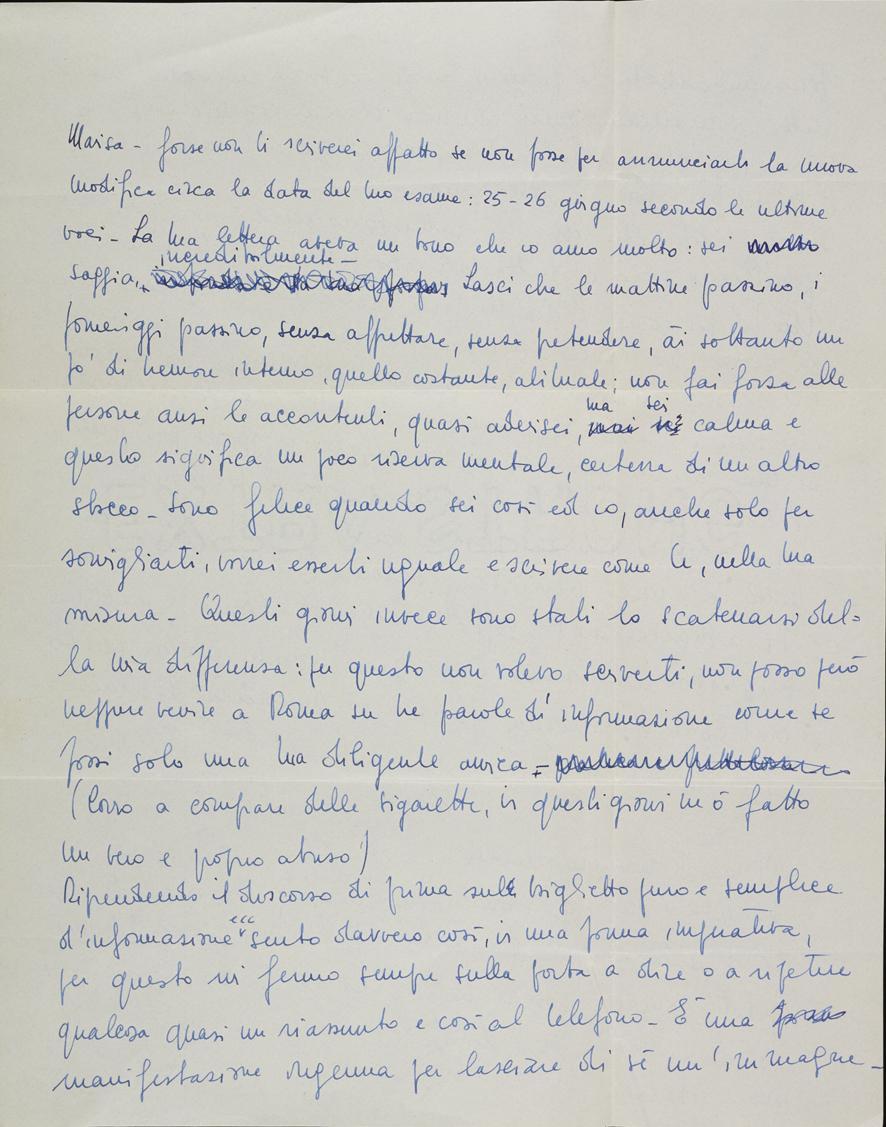 Marisa - forse non ti scriverei affatto se non fosse per annunciarti la nuova
modifica circa la data del tuo esame: 25-26 giugno secondo le ultime
voci - La tua lettera aveva un tono che io amo molto: sei molto
incredibilmente -
saggia, Lasci che le mattine passino, i
pomeriggi passino, senza affrettare, senza pretendere, ài soltanto un
po' di tremore interno, quello costante, abituale; non fai forza alle
ma sei
persone anzi le accontenti, quasi aderisci, mai calma e
questo significa un poco riserva mentale, certezza di un altro
sbocco - Sono felice quando sei così ed io, anche solo per
somigliarti, vorrei esserti uguale e scrivere come te, nella tua
misura - Questi giorni invece sono stati lo scatenarsi del=
la mia differenza: per questo non volevo scriverti, non posso però
neppure venire a Roma su tre parole d'informazione come se
fossi solo una tua diligente amica -
(Corro a comprare delle sigarette, in questi giorni ne ò fatto
un vero e proprio abuso)
Riprendendo il discorso di prima sul biglietto puro e semplice
d'informazione ecc sento davvero così, in una forma impurativa,
per questo mi fermo sempre sulla porta a dire o a ripetere
qualcosa quasi un riassunto e così al telefono - È una
manifestazione ingenua per lasciare di sé un'immagine -